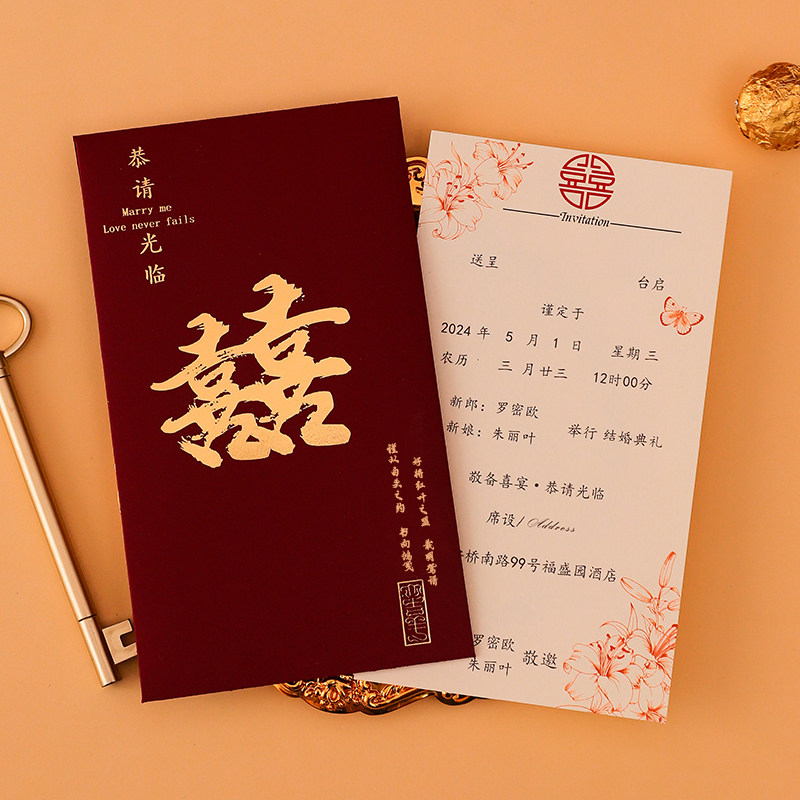 恭请
Marry me
Love never fails
光临
囍
谨以白头之约 书向鸿笺
好将红叶之盟 载明鸳谱
囍
Invitation
送呈
台启
谨定于
2024 年 5 月 1 日 星期 三
农历 三 月 廿三 12时00分
新郎: 罗密欧
新娘: 朱丽叶 举行 结婚典礼
敬备喜宴·恭请光临
席设/ Address
桥南路99号福盛园酒店
罗密欧
朱丽叶 敬邀